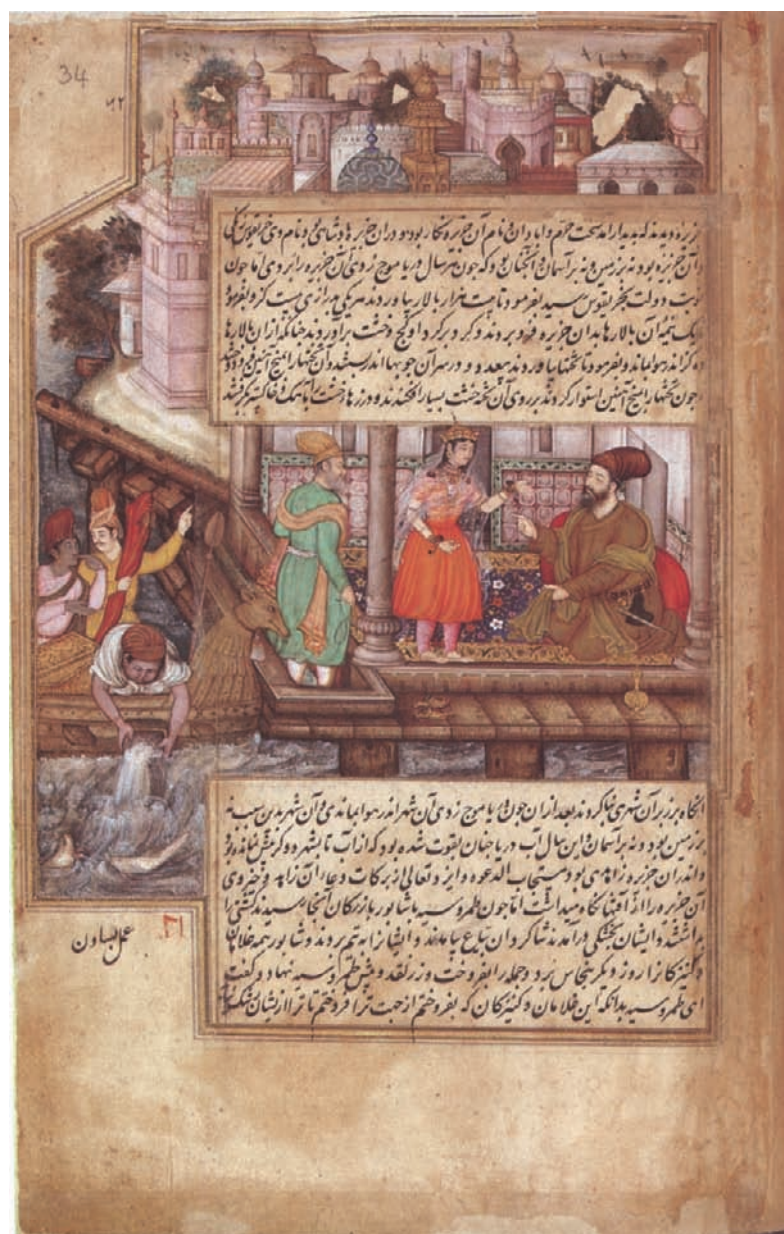 34
۴۲
جزیره دیدند که پدیدار امد سخت خرّم و ابادان و نام آن جزیره نکار بود و در ان جزیرها و شاهی بود نام وی
و آن جزیره بود نه بر زمین و نه بر آسمان و آنچنان بود که جون هر سال دریا موج زدی آن جزیره را بردی اما جون
نوبت دولت رسید بفرمود تا بیست هزار بالار بیاوردند هر یکی بدرازی بیست کز و بفرمود
یک نیمهٔ آن بالارها بدان جزیره فرو بردند و کرد بر کرد او کج و خشت براوردند جنانکه از ان بالارها
ده کز اندر هوا بماند و بفرمود تا تختها بیاوردند و در سر آن جوبها اندر بستند و آن تختها را بمیخ آهنین فرو دوختند
جون تختها را بمیخ آهنین استوار کردند بر روی آن تخته خشت بسیار افکندند و درزها خشت را باهک و خاکستر کرفتند
انکاه بر زبر آن شهری بنا کردند بعد از ان جون دریا موج زدی آن شهر اندر هوا بماندی و آن شهر بدین سبب نه
بر زمین بود و نه بر آسمان و این سال آب دریا جنان بقوت شده بود که از آب تا بشهر دو کز بیش نمانده بود
و اندر ان جزیره زاهدی بود مستجاب الدعوه و ایزد تعالی از برکات و دعاء آن زاهد و خیر وی
آن جزیره را از آفتها نکاه میداشت امّا جون طمروسیه با شابور بازرکان آنجا رسیدند کشتی را
بداشتند و ایشان بخشکی درآمدند شاکردان بیاع بیامدند و ایشانرا به تیم بردند و شابور همه غلامان
و کنیزکانرا روز دیکر بنخاس برد و جمله را بفروخت و زر نقد و بیش طمروسیه نهاد و کفت
ای طمروسیه بدانکه این غلامان و کنیزکان که بفروختم از جهت ترا فروختم تا ترا از ایشان
عمل بساون